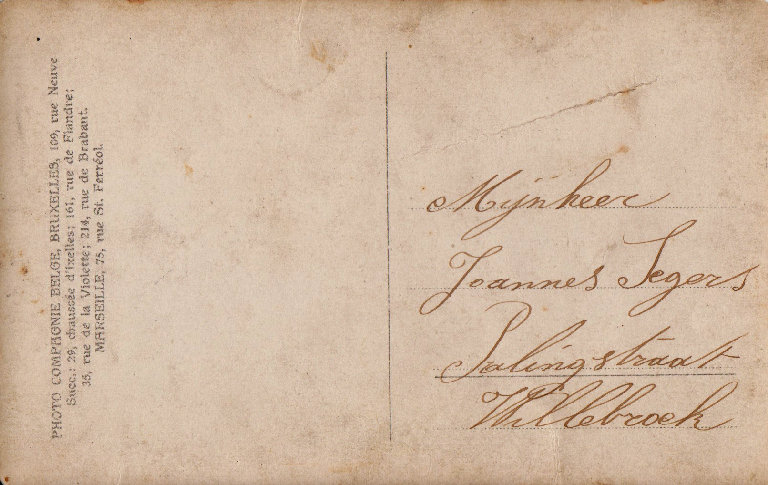 PHOTO COMPAGNIE BELGE, BRUXELLES, 109, rue Neuve
Succ.: 29, chaussée d'Ixelles; 161, rue de Flandre;
35, rue de la Violette; 214, rue de Brabant.
MARSEILLE, 75, rue St. Ferréol.
Mijnheer
Joannes Segers
Palingstraat
Willebroek